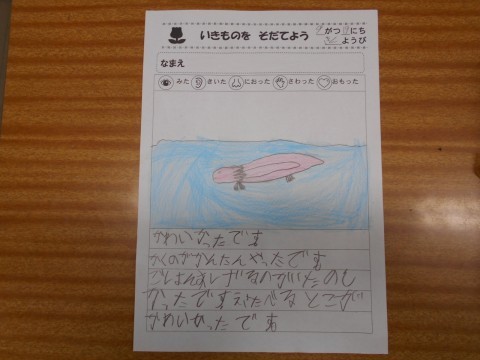 いきものを そだてよう
がつ にち
ようび
なまえ
みた きいた におった さわった おもった
かわいかったです
かくのがかんたんやったです
ごはんあげるのがたのし
かったですえたべるとこが
かわいかったです